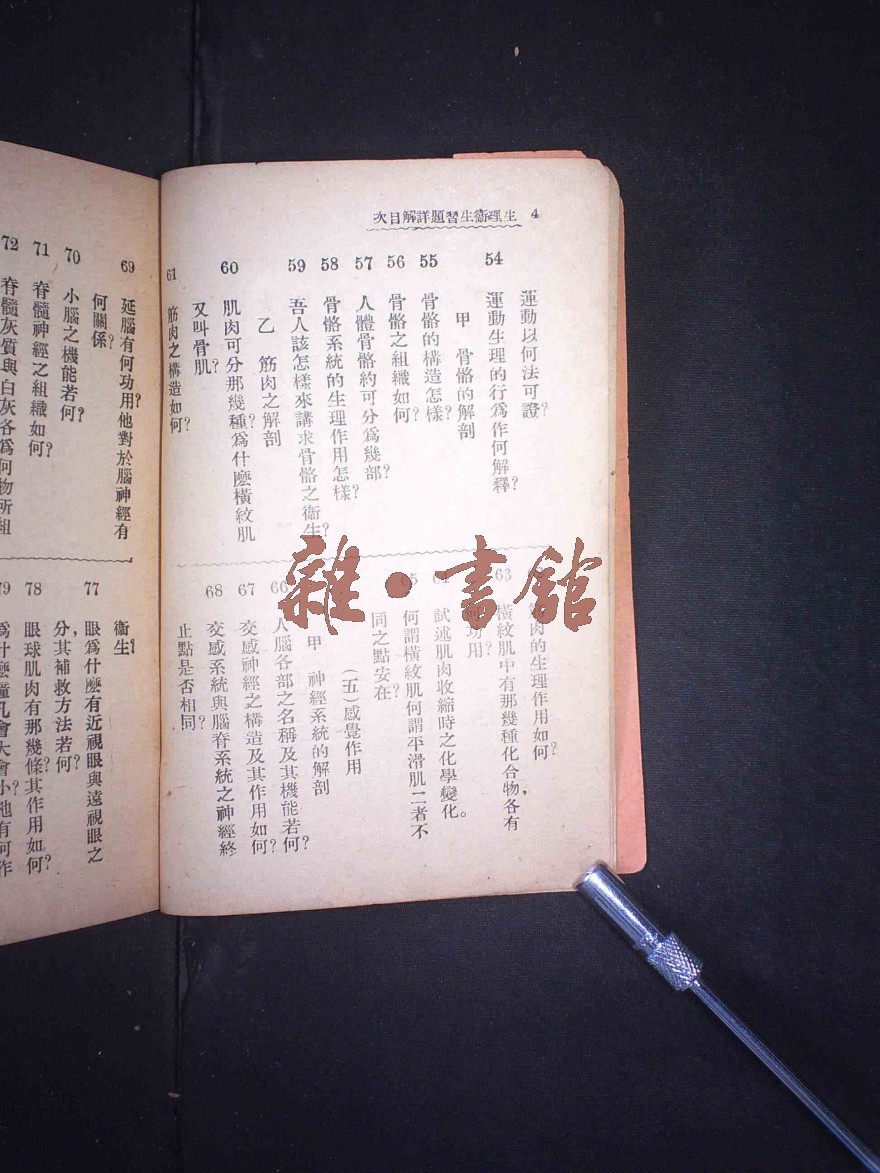 4 生理衞生習題詳解目次
運動以何法可證？
54 運動生理的行爲作何解釋？
甲 骨骼的解剖
55 骨骼的構造怎樣？
56 骨骼之組織如何？
57 人體骨骼約可分爲幾部？
58 骨骼系統的生理作用怎樣？
59 吾人該怎樣來講求骨骼之衞生？
乙 筋肉之解剖
60 肌肉可分那幾種？爲什麽橫紋肌
又叫骨肌？
61 筋肉之構造如何？
肉的生理作用如何？
63 橫紋肌中有那幾種化合物，各有
功用？
試述肌肉收縮時之化學變化。
65 何謂橫紋肌何謂平滑肌二者不
同之點安在？
（五）感覺作用
甲 神經系統的解剖
66 人腦各部之名稱及其機能若何？
67 交感神經之構造及其作用如何？
68 交感系統與腦脊系統之神經終
止點是否相同？
69 延腦有何功用？他對於腦神經有
何關係？
70 小腦之機能若何？
71 脊髓神經之組織如何？
72 脊髓灰質與白灰各爲何物所組
衞生？
77 眼爲什麽有近視眼與遠視眼之
分，其補救方法若何？
78 眼球肌肉有那幾條？其作用如何？
79 爲什麽瞳孔會大會小？他有何作
雜·書館